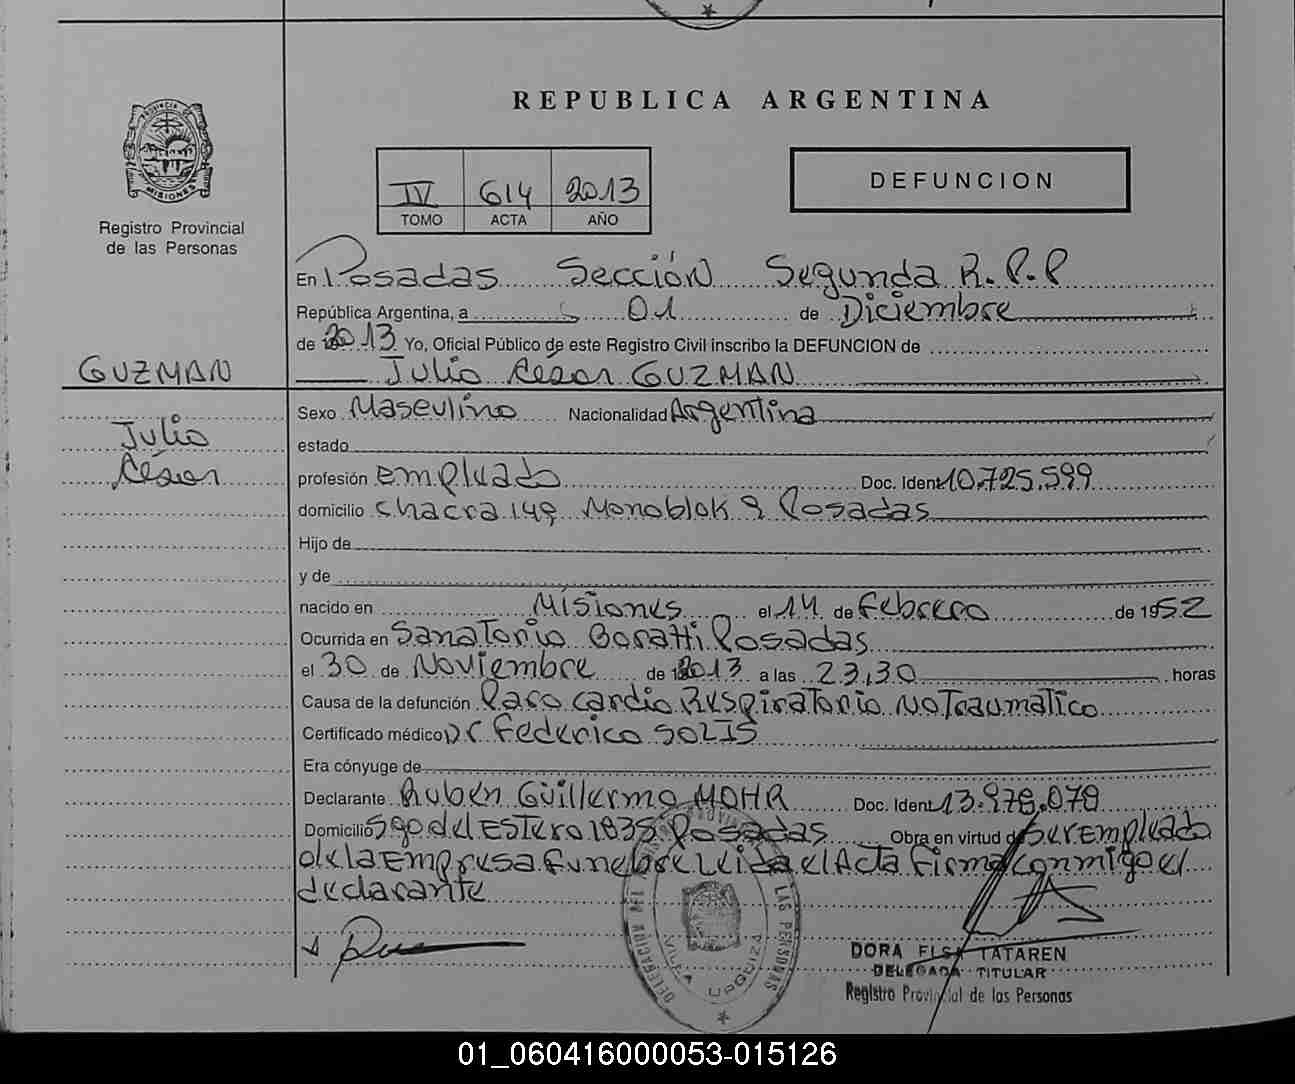 REPUBLICA ARGENTINA
PROVINCIA DE
MISIONES
Registro Provincial
de las Personas
IV 614 2013
TOMO ACTA AÑO
DEFUNCION
En Posadas Sección Segunda R.P.P
República Argentina, a 01 de Diciembre
de 2013 Yo, Oficial Público de este Registro Civil inscribo la DEFUNCION de
GUZMAN
Julio César GUZMAN
Julio
César
Sexo Masculino Nacionalidad Argentina
estado
profesión empleado Doc. Ident. 10.725.599
domicilio chacra 149 Monoblok 9 Posadas
Hijo de
y de
nacido en Misiones el 14 de Febrero de 1952
Ocurrida en Sanatorio Boratti Posadas
el 30 de Noviembre de 2013 a las 23,30 horas
Causa de la defunción Paro Cardio Respiratorio No Traumatico
Certificado médico Dr Federico SOLIS
Era cónyuge de
Declarante Ruben Guillermo MOHR Doc. Ident. 13.978.078
Domicilio Sgo del Estero 1835 Posadas Obra en virtud de ser Empleado
de la Empresa Funebre Leida el Acta Firma Conmigo el
declarante
DELEGACIÓN DEL PROVINCIAL LAS PERSONAS
VILLA URQUIZA
DORA ELSA TATAREN
DELEGADA TITULAR
Registro Provincial de las Personas
01_060416000053-015126